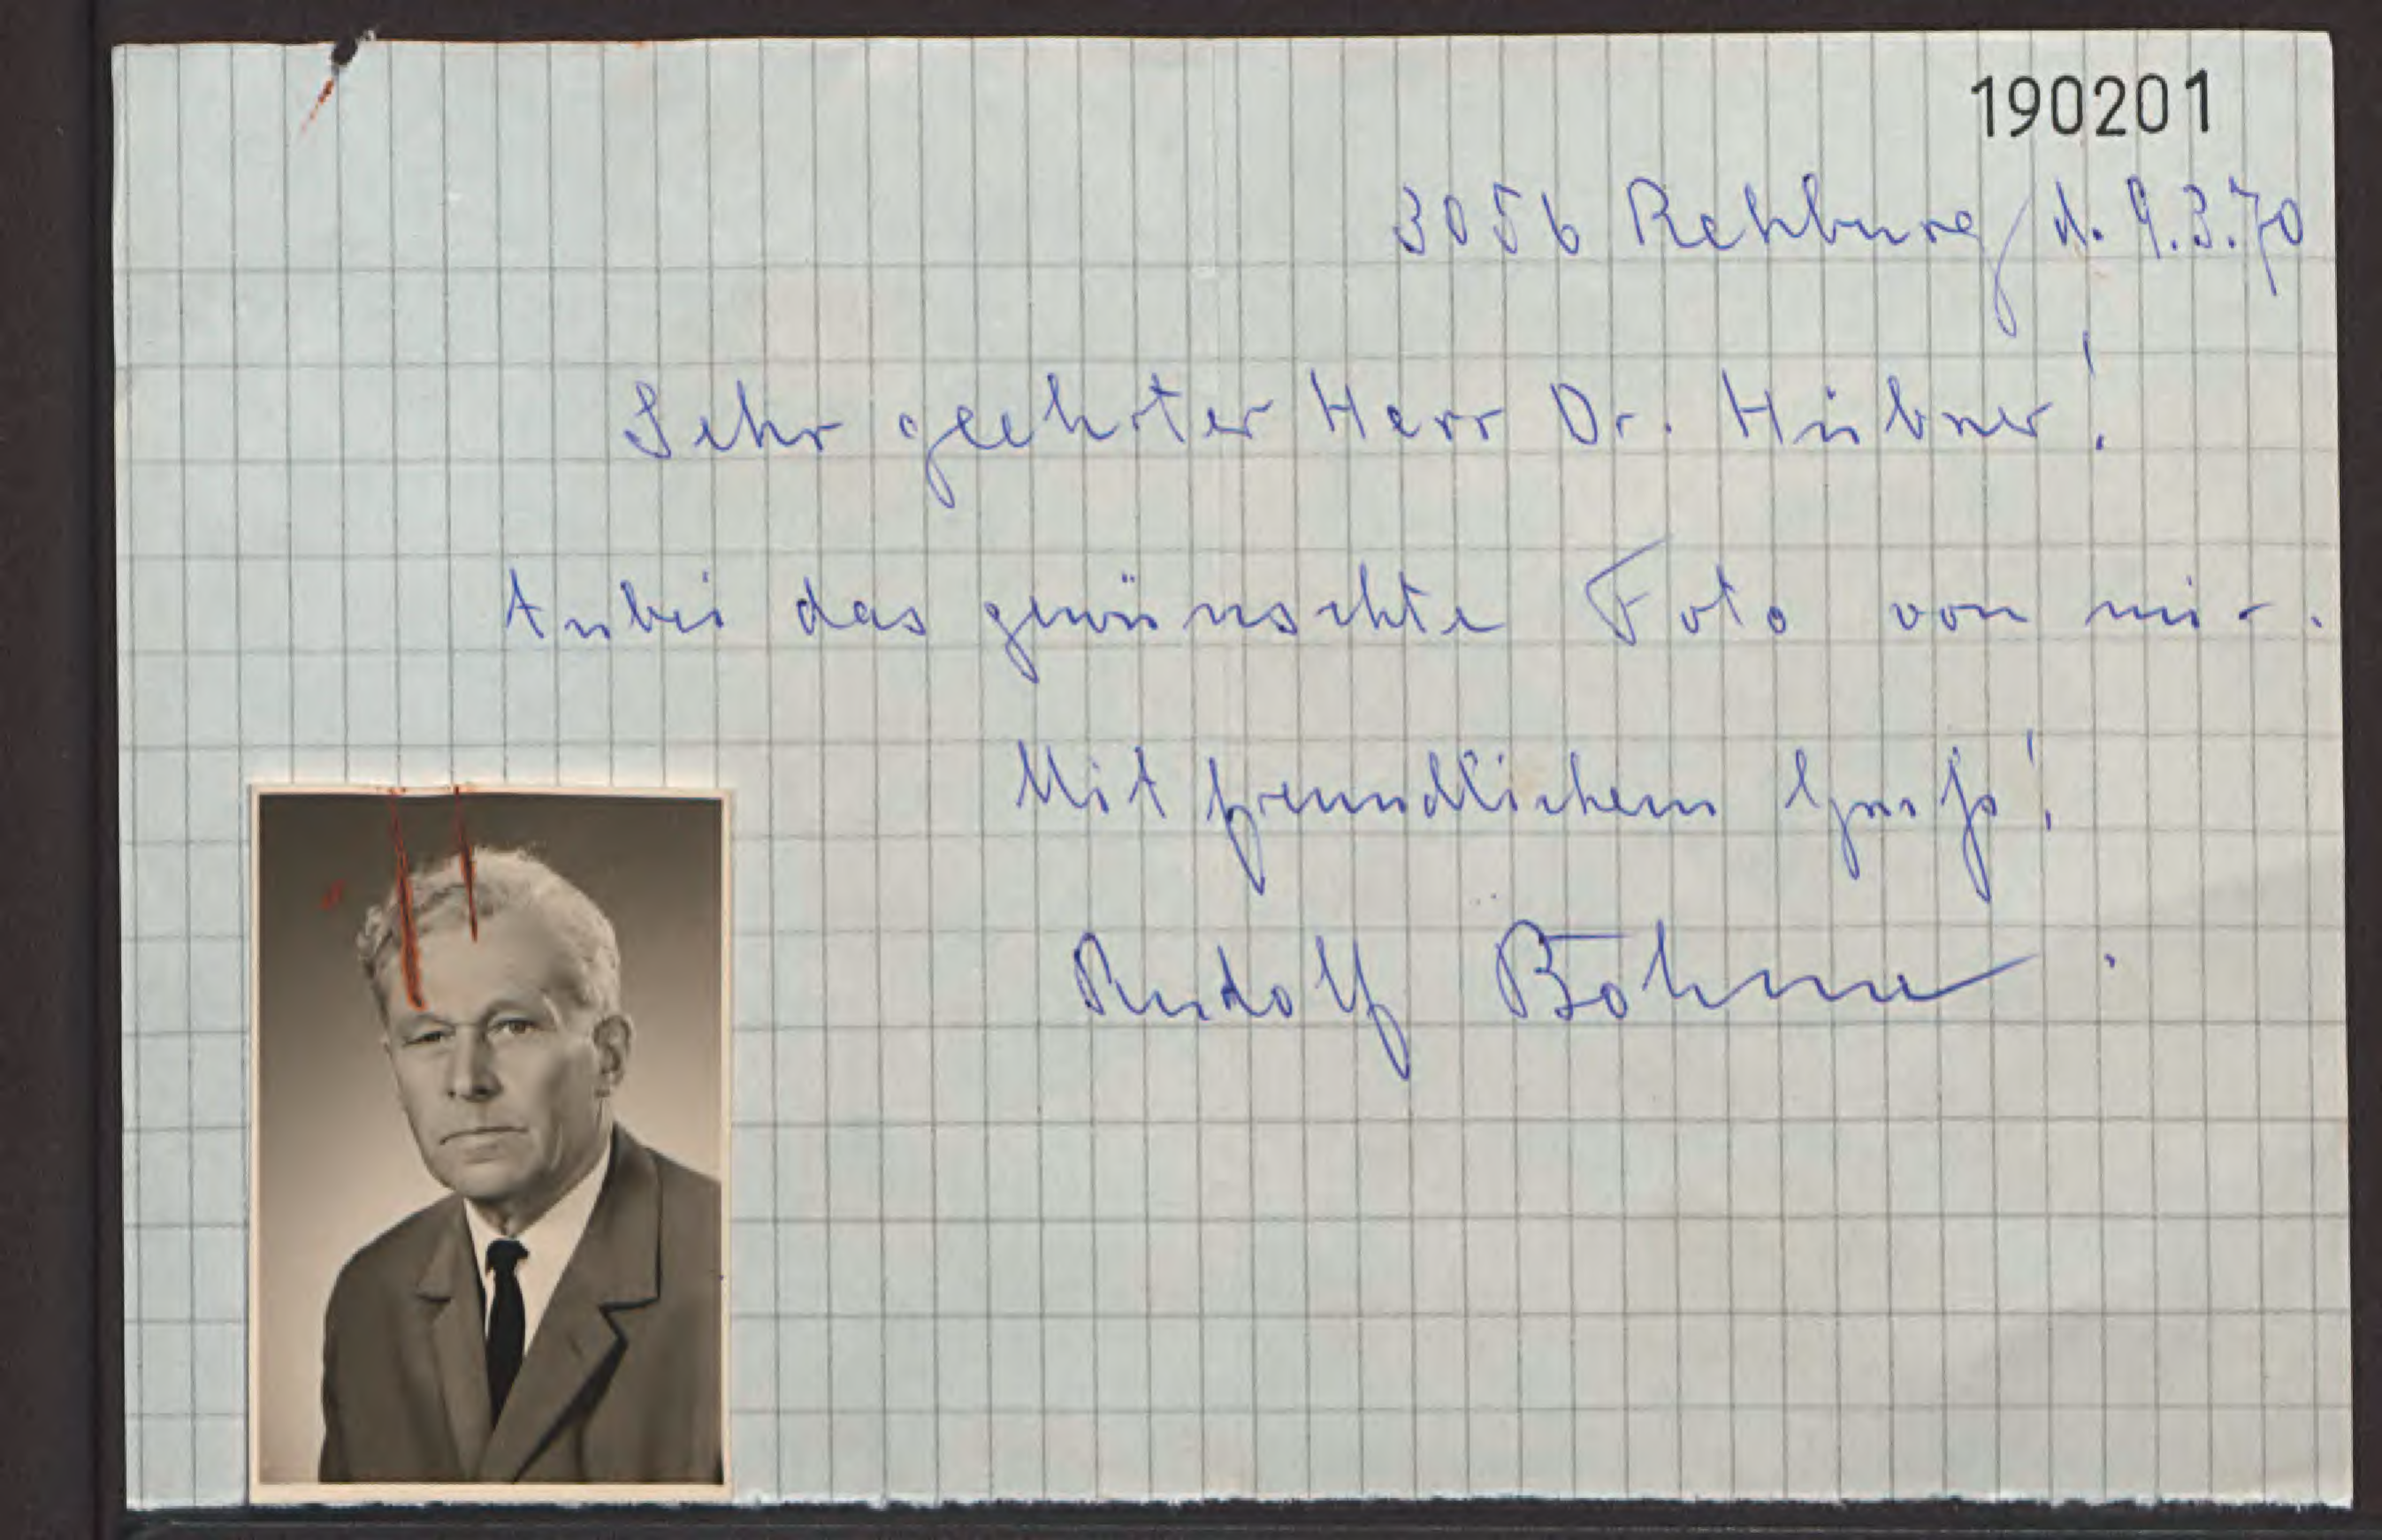 190201
3056 Rehburg, d. 9.3.70
Sehr geehrter Herr Dr. Hübner!
Anbei das gewünschte Foto von mir.
Mit freundlichem Gruß!
Rudolf Böhme